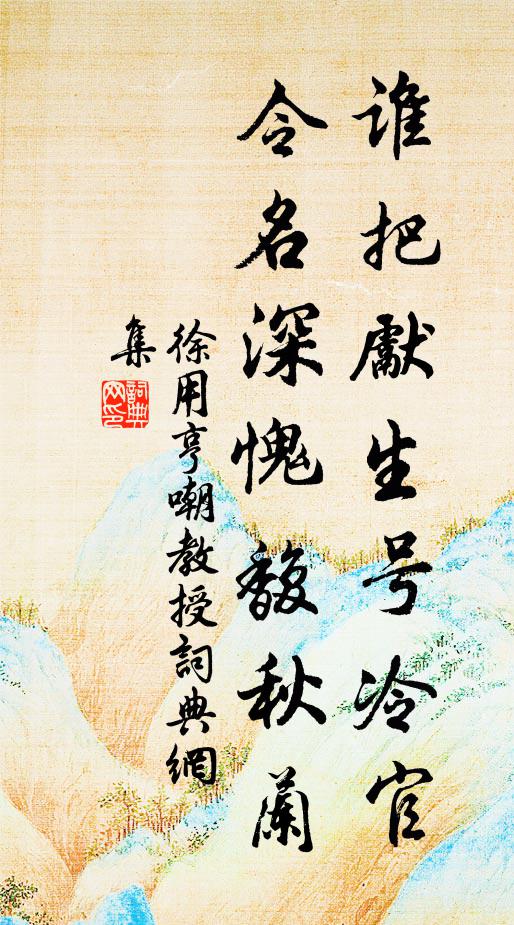 谁把獻生号冷官
令名深愧馥秋蘭
徐用亨嘲教授詞典網
集
詞典
网印